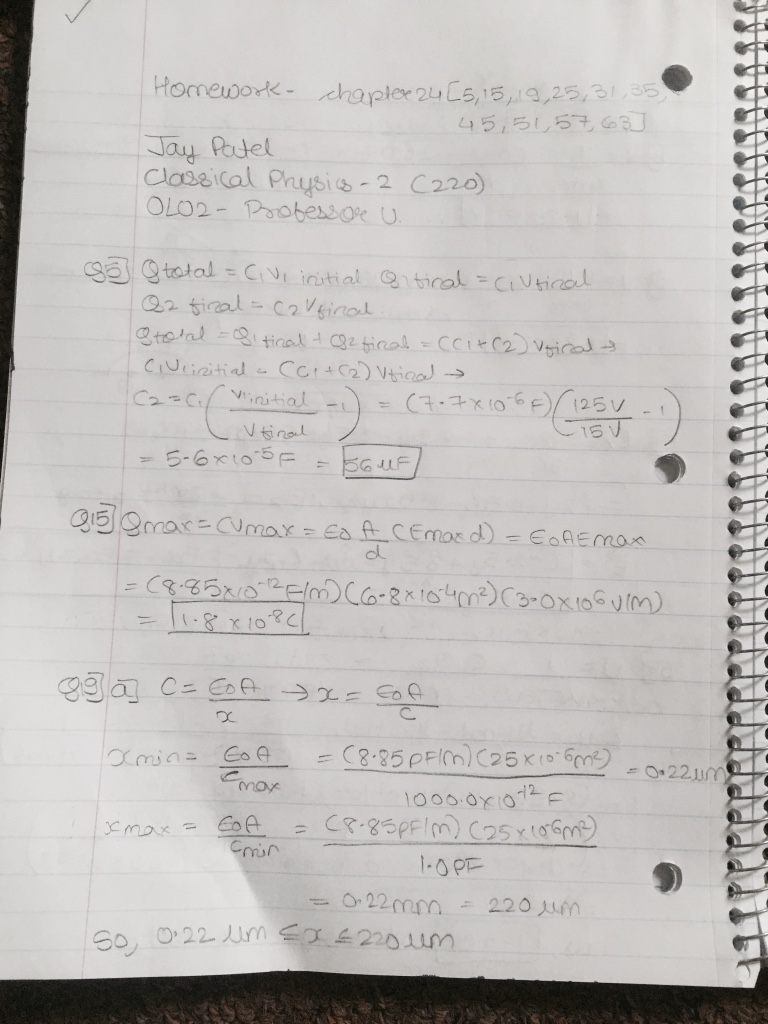 Homework- chapter 24 [5,15,19,25,31,35,
45,51,57,63]
Jay Patel
Classical Physics-2 (220)
OL02- Professor U.
Q5] Qtotal = C1V1 initial Q1 final = C1Vfinal
Q2 final = C2Vfinal
Qtotal = Q1 final + Q2 final = (C1+C2) Vfinal →
C1V1initial = (C1+C2) Vfinal →
C2 = C1 (V1initial / Vfinal -1) = (7.7×10-6 F) (125V / 15V - 1)
= 5.6×10-5F = 56 uF
Q15] Qmax = CVmax = ε0 A/d (Emax d) = ε0AEmax
= (8.85×10-12F/m)(6.8×10-4m²)(3.0×106V/m)
= 1.8×10-8C
Q19] a] C = ε0A / x → x = ε0A / C
xmin = ε0A / Cmax = (8.85pF/m)(25×10-6m²) / 1000.0×10-12F = 0.22um
xmax = ε0A / Cmin = (8.85pF/m)(25×10-6m²) / 1.0PF
= 0.22mm = 220um
So, 0.22 um ≤ x ≤ 220um